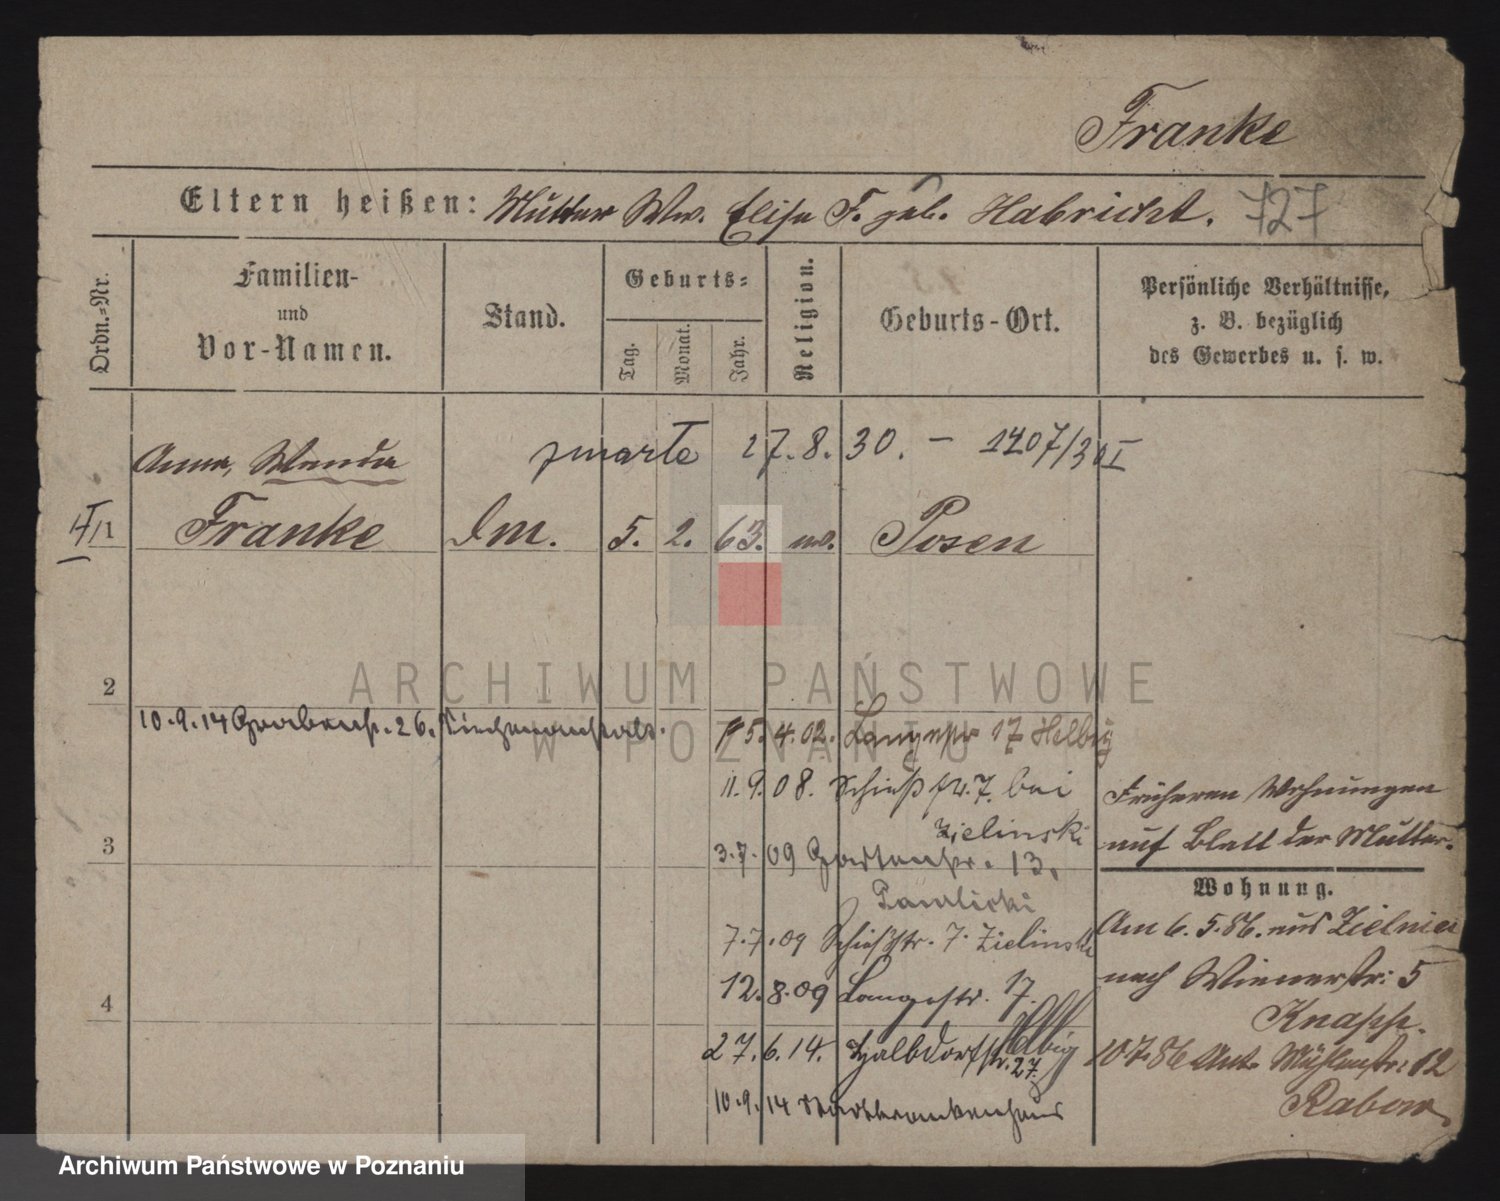 Franke
Eltern heißen: Mutter Ww. Elise F. geb. Habricht. 727
Ordn.-Nr.
Familien-
und
Vor-Namen.
Stand.
Geburts-
Tag.
Monat.
Jahr.
Religion.
Geburts-Ort.
Persönliche Verhältnisse,
z. B. bezüglich
des Gewerbes u. s. w.
Anna, Wanda
zmarła 27.8.30. - 1207/30 I
1 Franke 5. 2. 63. Posen
2
ARCHIWUM PAŃSTWOWE
W POZNANIU
10.9.14 Grabenstr. 26.
15.4.02. Langestr 17 Helbig
11.9.08. Schießstr. 7. bei
Zielinski
3
3.7.09 Gartenstr. 13.
Pawlicki
7.7.09 Schießstr. 7. Zielinski
4
12.8.09 Langestr. 17.
Helbig
27.6.14. Halbdorfstr. 27.
10.9.14 Stadtkrankenhaus
Früheren Wohnungen
auf Blatt der Mutter.
Wohnung.
Am 6. 5. 86. aus Zielniec
nach Wienerstr: 5
Knapp.
10.7.86 Mühlenstr: 12
Rabow
Archiwum Państwowe w Poznaniu